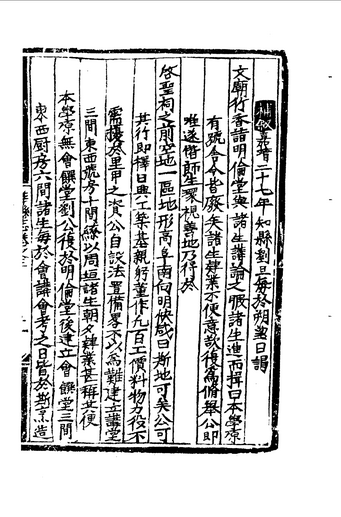 嘉靖二十七年知縣劉旦每於朔望日謁
文廟行香諸明倫堂與諸生講論之暇諸生進而揖曰本學原
有號舍今皆廢矣諸生肄業不便意欲復為脩舉公即
唯遂偕師生環視善地乃得於
啓聖祠之前空地一區地形高阜南向明快咸曰斯地可矣公可
其行即擇日興工築基親躬董作凡百工價料物力役不
需擾於里甲之資公自設法置備畧不少為難建立講堂
三間東西號房十間繚以周垣諸生朝夕肄業甚稱其便
本學原無會饌堂劉公復於明倫堂後建立會饌堂三間
東西厨房六間諸生每於會講會考之日皆於斯烹造